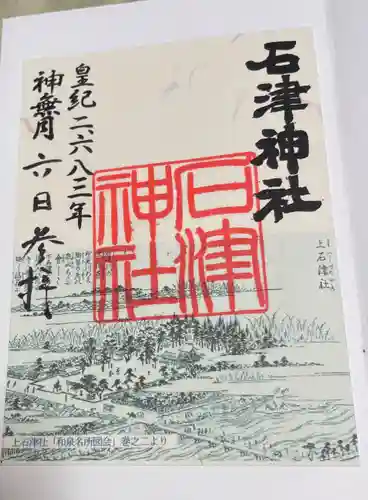 石津神社
皇紀二、六八三年
神無月六日参拝
石津
神社
上石津社
上石津社「和泉名所図会」巻之二より